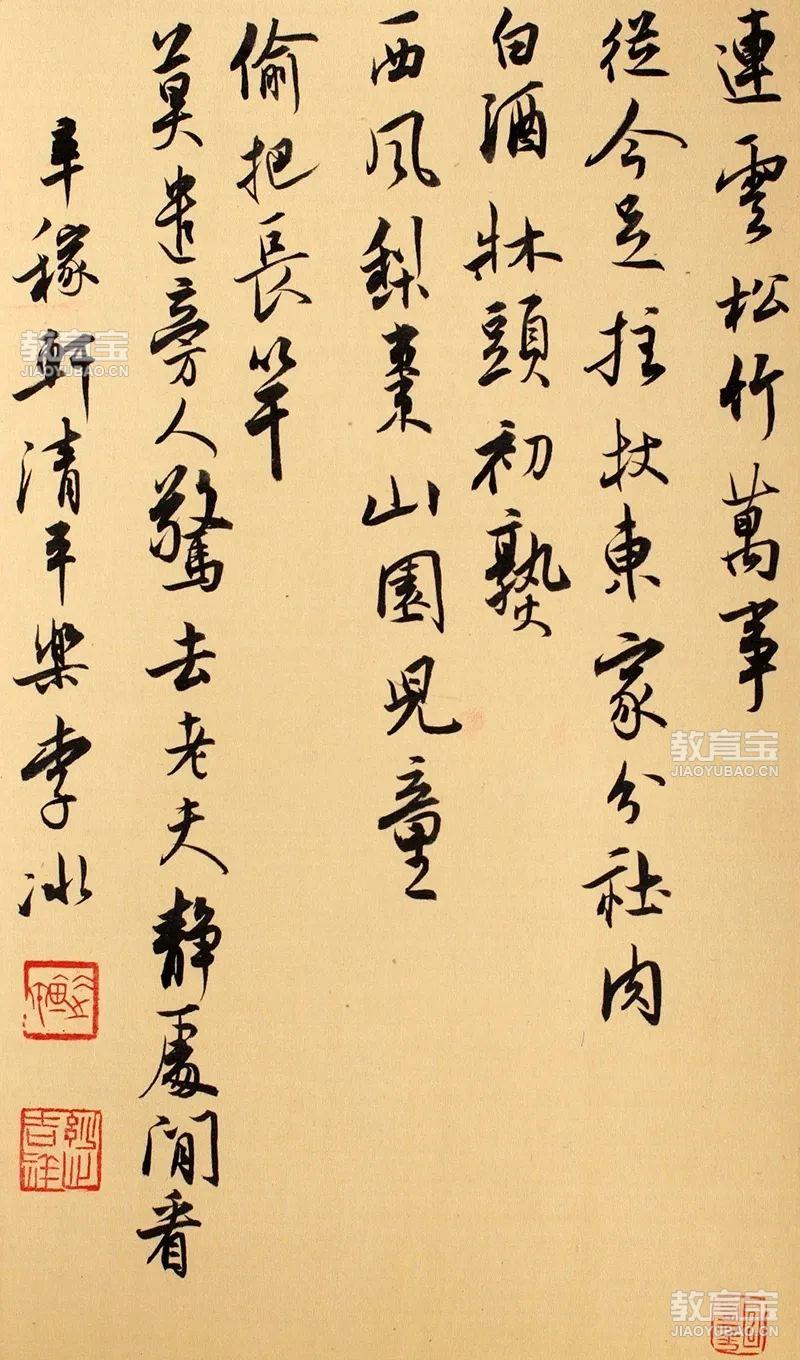 連雲松竹萬事
從今足拄杖東家分社肉
白酒牀頭初熟
西風梨棗山園兒童
偷把長竿
莫遣旁人驚去老夫靜處閒看
辛稼軒清平樂李冰
教育宝
JIAOYUBAO.CN
教育宝
JIAOYUBAO.CN
教育宝
JIAOYUBAO.CN